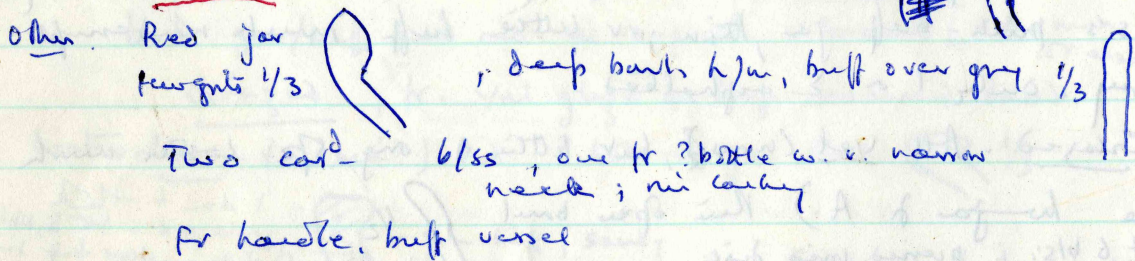 Other. Red jar
few grits 1/3 , deep bowls h/m, buff over grey 1/3
Two cord- b/ss, one fr ?bottle w. v. narrow
neck;
fr handle, buff vessel